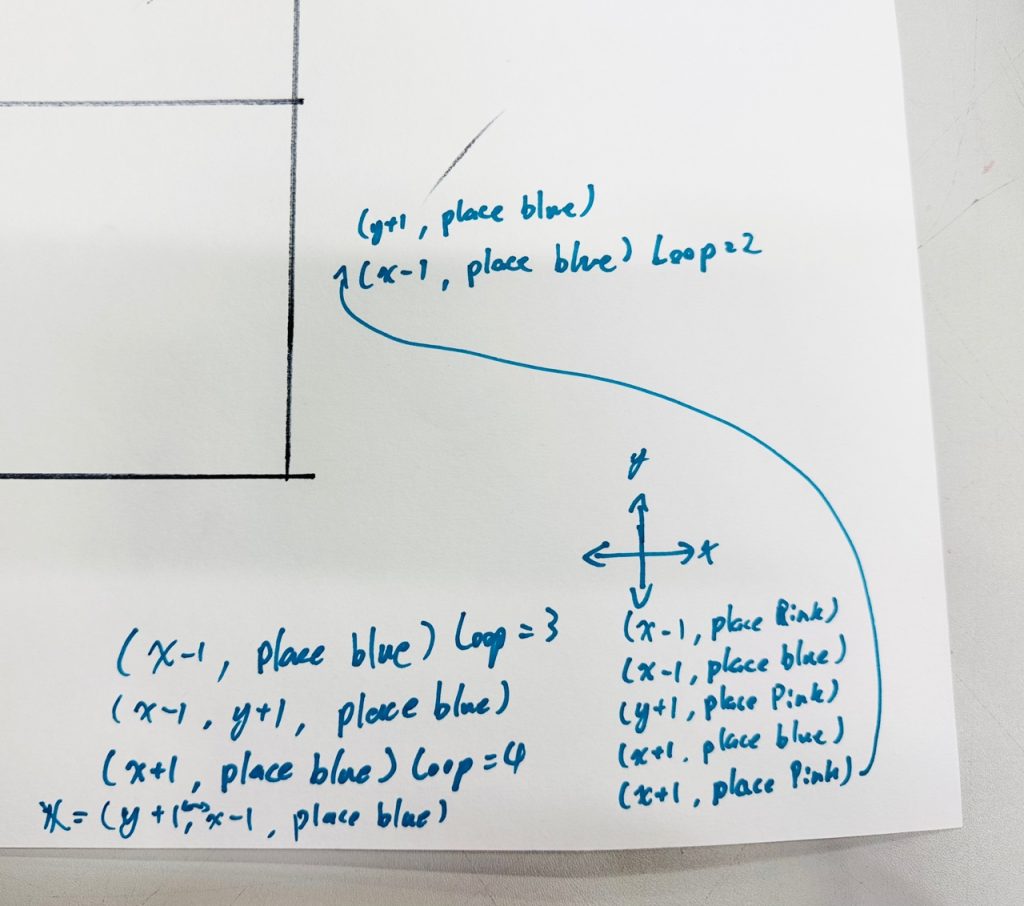 (y+1, place blue)
(x-1, place blue) Loop=2
y
x
(x-1, place blue) Loop=3
(x-1, y+1, place blue)
(x+1, place blue) Loop=4
(y+1, x-1, place blue)
(x-1, place Pink)
(x-1, place blue)
(y+1, place Pink)
(x+1, place blue)
(x+1, place Pink)